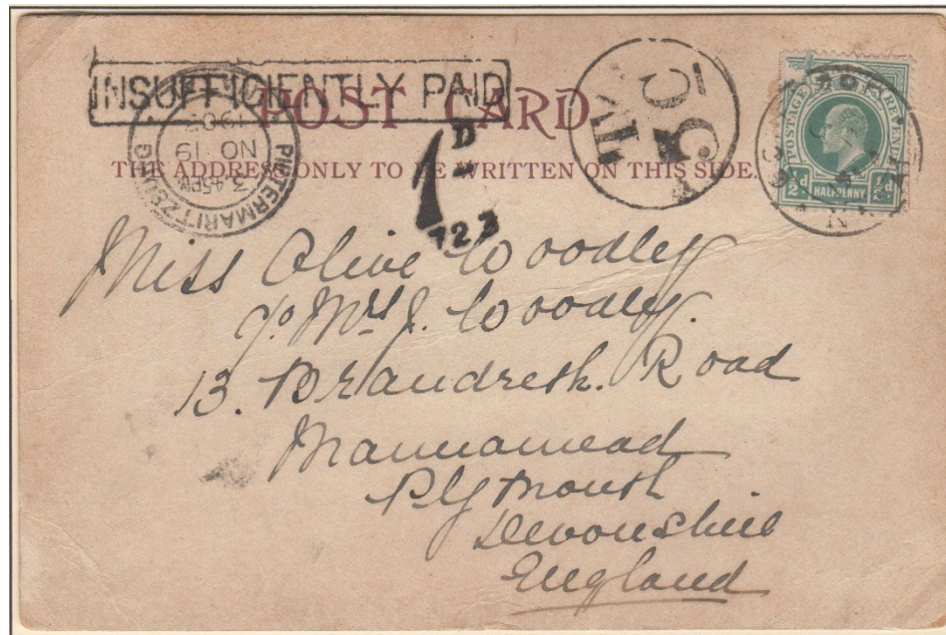 INSUFFICIENTLY PAID
POST CARD
THE ADDRESS ONLY TO BE WRITTEN ON THIS SIDE.
PIETERMARITZBURG
3.45PM
NO 19
190
T
5C
1D
723
POSTAGE REVENUE
½d HALFPENNY ½d
Miss Olive Woodley
c/o Mrs J. Woodley.
13. Brandreth. Road
Mannamead
Plymouth
Devonshire
England